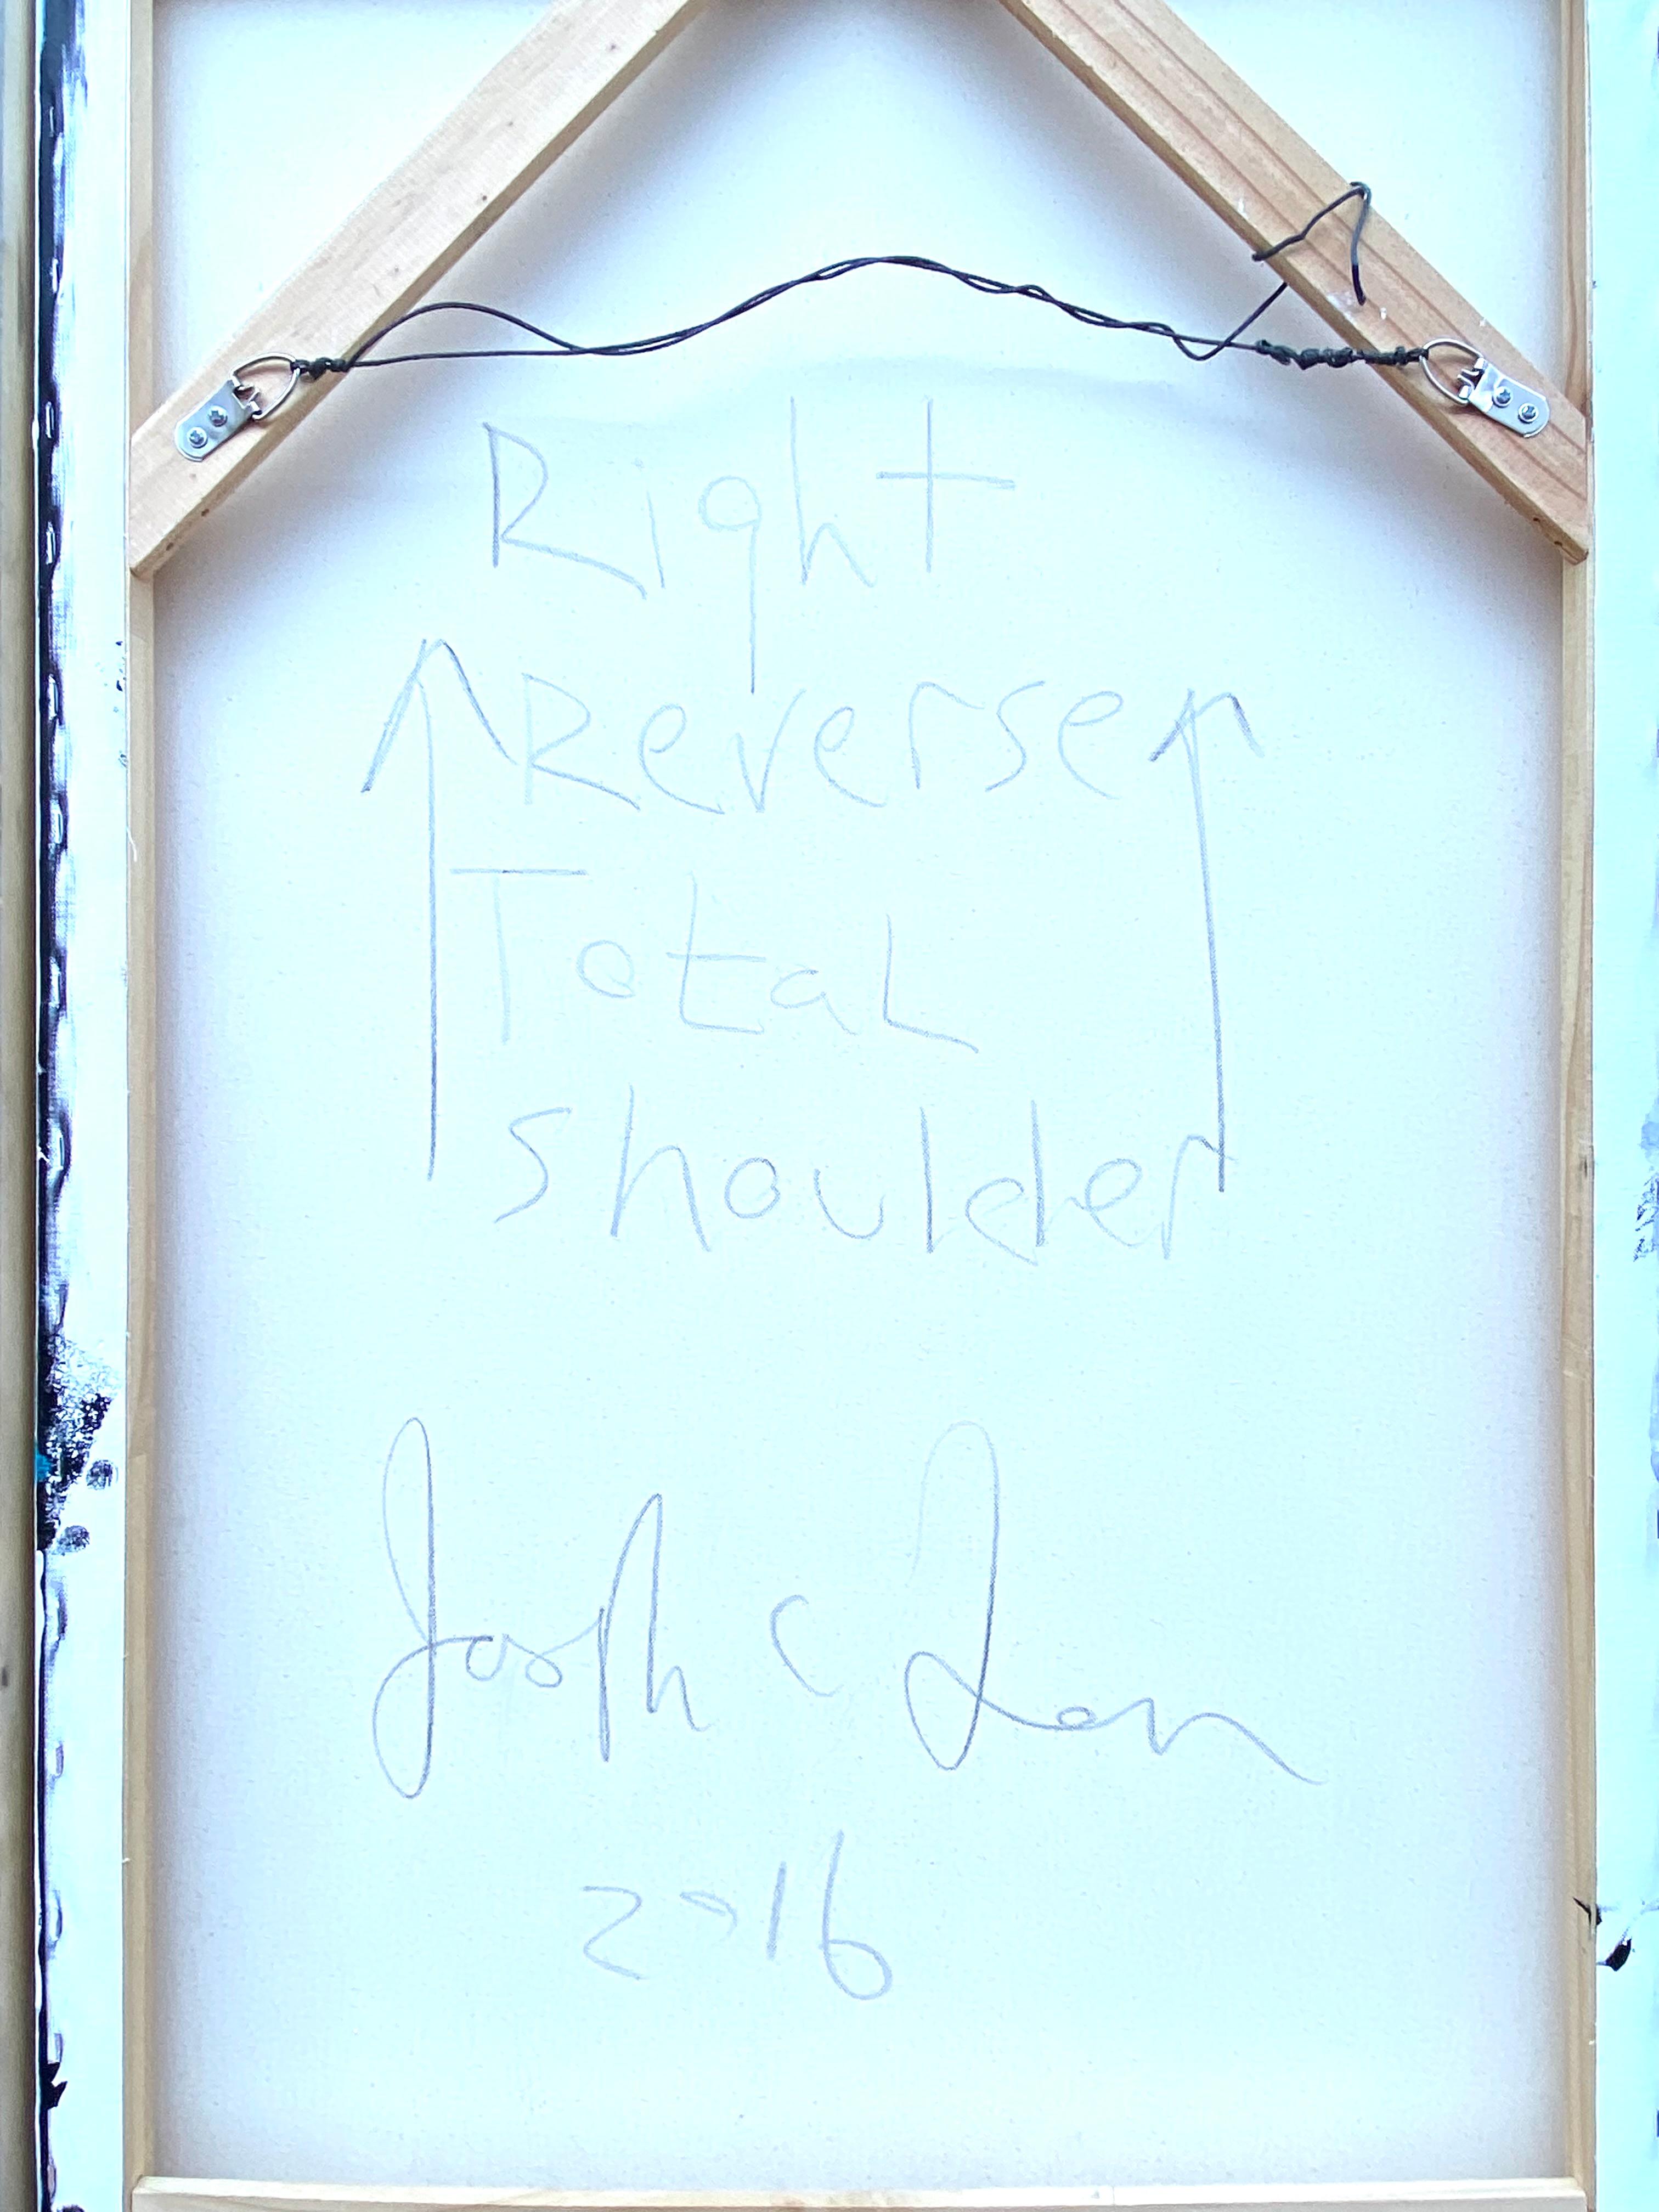 Right
Reverse
Total
Shoulder
Joseph C
2016